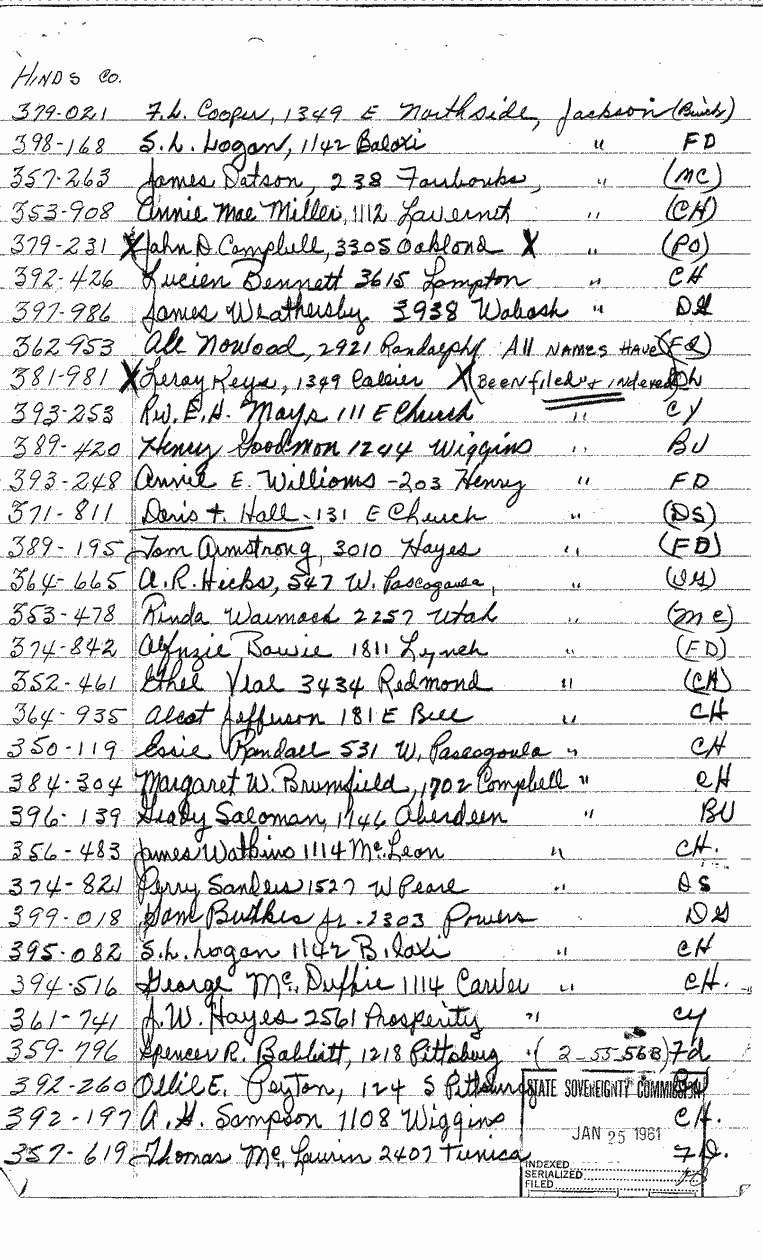 HINDS CO.
379-021 F.L. Cooper, 1349 E Northside, Jackson (Buick)
398-168 S.L. Logan, 1142 Baloxi " FD
357-263 James Dotson, 238 Fairbanks, " (MC)
353-908 Annie Mae Miller, 1112 Lavernet " (CH)
379-231 X John D. Campbell, 3305 Oakland X " (PO)
392-426 Lucien Bennett 3615 Lampton " CH
397-986 James Weathersby 3938 Wabash "
362-953 Nowood, 2921 Randolph All NAMES HAVE (Fd)
381-981 X Leroy Keys, 1349 X (BEEN filed & indexed)
393-253 Rev. E.H. Mays 111 E Church " CY
389-420 Henry Goodmon 1244 Wiggins " BU
393-248 Annie E. Williams - 203 Henry " FD
371-811 Doris t. Hall - 131 E Church " (DS)
389-195 Tom Armstrong, 3010 Hayes " (FD)
364-665 A.R. Hicks, 547 W. Pascagoula, "
353-478 Rinda Warmack 2257 Utah (MC)
374-842 Alfnzie Bowie 1811 Lynch " (FD)
352-461 Ethel Veal 3434 Redmond " (CH)
364-935 Alcot Jefferson 181 E Bell " CH
350-119 Essie Randall 531 W. Pascogoula " CH
384-304 Margaret W. Brumfield, 1702 Campbell " CH
396-139 Grady Saloman, 1746 Aberdeen " BU
356-483 James Watkins 1114 McLeon " CH.
374-821 Perry Sanders 1527 W Pearl " DS
399-018 Sam Butker Jr. - 2303 Powers
395-082 S.L. Logan 1142 Biloxi " CH
394-516 George McDuffie 1114 Carver " CH.
361-741 J.W. Hayes 2561 Prosperity " CY
359-796 Spencer R. Babbitt, 1218 Pittsburg " (2-55-56B) Fd
392-260 Ollie E. Peyton, 124 S Pittsburg
STATE SOVEREIGNTY COMMISSION
392-197 A.H. Sampson 1108 Wiggins CH.
JAN 25 1961
357-619 Thomas McLaurin 2407 Tunica F.D.
INDEXED
SERIALIZED
FILED